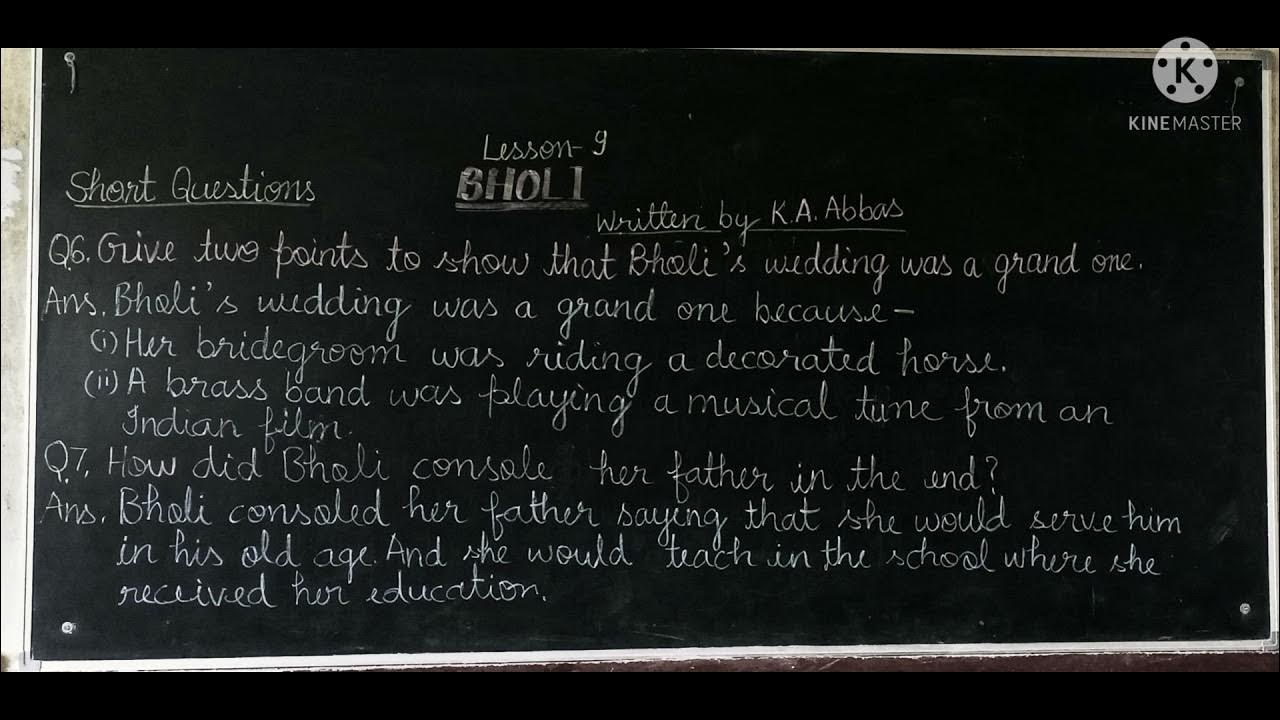 K
KINEMASTER
Lesson-9
Short Questions
BHOLI
Written by K.A. Abbas
Q6. Give two points to show that Bholi's wedding was a grand one.
Ans. Bholi's wedding was a grand one because-
(i) Her bridegroom was riding a decorated horse.
(ii) A brass band was playing a musical tune from an
Indian film.
Q7. How did Bholi console her father in the end?
Ans. Bholi consoled her father saying that she would serve him
in his old age. And she would teach in the school where she
received her education.